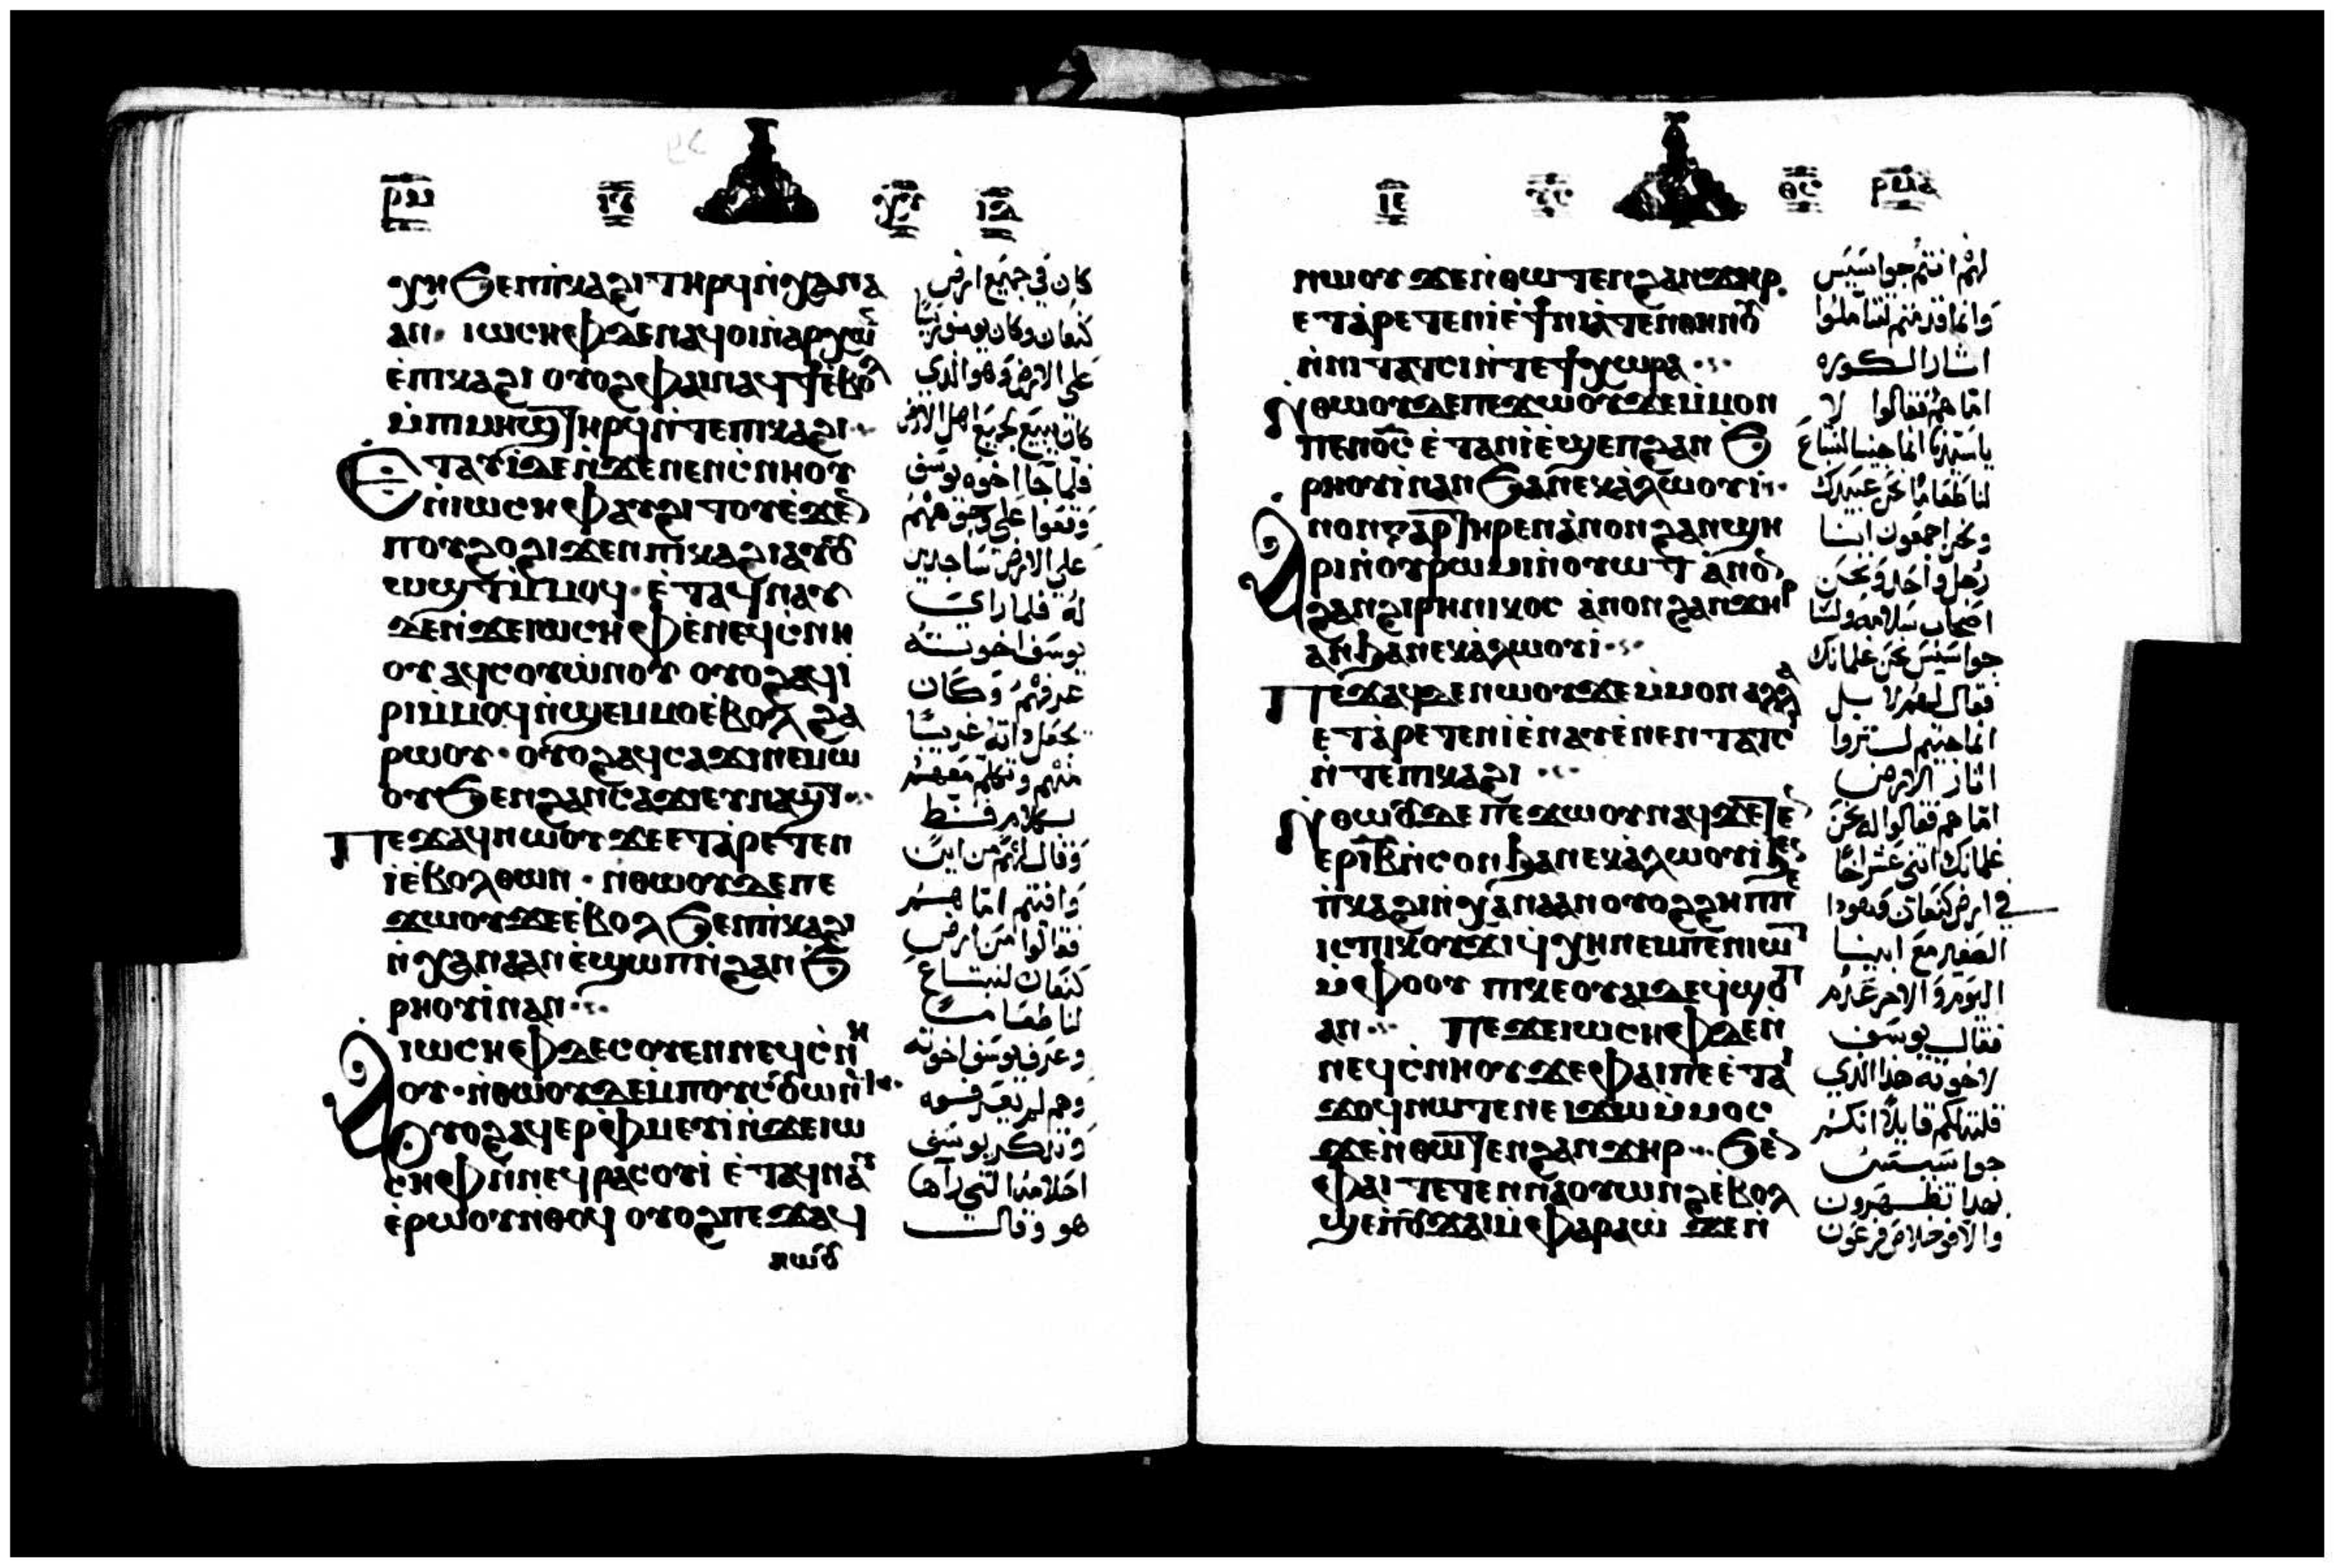 ⲣⲙ ⲓⲥ ⲭⲥ
ⲭⲏ ϧⲉⲛⲡⲓⲕⲁϩⲓ ⲧⲏⲣϥ ⲛ̀ⲭⲁⲛⲁ
ⲁⲛ· ⲓⲱⲥⲏⲫ ⲇⲉ ⲛⲁϥⲟⲓ ⲛ̀ⲁⲣⲭⲱⲛ
ⲉ̀ⲡⲓⲕⲁϩⲓ ⲟⲩⲟϩ ⲫⲁⲓ ⲛⲁϥϯ ⲉ̀ⲃⲟⲗ
ⲙ̀ⲡⲓⲙⲏϣ ⲧⲏⲣϥ ⲛ̀ⲧⲉ ⲡⲓⲕⲁϩⲓ
ⲉ̀ⲧⲁⲩⲓ̀ ⲇⲉ ⲛ̀ϫⲉ ⲛⲉⲛⲥ̀ⲛⲏⲟⲩ
ⲛ̀ⲓⲱⲥⲏⲫ ⲁⲩϩⲓⲧⲟⲩ ⲉ̀ϫⲉⲛ
ⲡⲟⲩϩⲟ ϩⲓϫⲉⲛ ⲡⲓⲕⲁϩⲓ ⲁⲩⲟⲩ
ⲱϣⲧ ⲙ̀ⲙⲟϥ· ⲉ̀ⲧⲁϥⲛⲁⲩ
ⲇⲉ ⲛ̀ϫⲉ ⲓⲱⲥⲏⲫ ⲉ̀ⲛⲉϥⲥ̀ⲛⲏ
ⲟⲩ ⲁϥⲥⲟⲩⲱⲛⲟⲩ ⲟⲩⲟϩ ⲁϥⲓ̀
ⲣⲓ ⲙ̀ⲙⲟϥ ⲛ̀ϣⲉⲙⲙⲟ ⲉ̀ⲃⲟⲗ ϩⲁ
ⲣⲱⲟⲩ· ⲟⲩⲟϩ ⲁϥⲥⲁϫⲓ ⲛⲉⲙⲱ
ⲟⲩ ϧⲉⲛ ϩⲁⲛⲥⲁϫⲓ ⲉⲩⲛⲁϣⲧ
ⲡⲉϫⲁϥ ⲛⲱⲟⲩ ϫⲉ ⲉ̀ⲧⲁⲣⲉⲧⲉⲛ
ⲓ̀ ⲉ̀ⲃⲟⲗ ⲑⲱⲛ· ⲛ̀ⲑⲱⲟⲩ ⲇⲉ ⲡⲉ
ϫⲱⲟⲩ ϫⲉ ⲉ̀ⲃⲟⲗ ϧⲉⲛ ⲡⲓⲕⲁϩⲓ
ⲛ̀ⲭⲁⲛⲁⲁⲛ ⲉ̀ϣⲱⲡ ⲛ̀ϩⲁⲛϧ
ⲣⲏⲟⲩⲓ̀ ⲛⲁⲛ
ⲁ ⲓⲱⲥⲏⲫ ⲇⲉ ⲥⲟⲩⲉⲛ ⲛⲉϥⲥ̀ⲛⲏ
ⲟⲩ· ⲛ̀ⲑⲱⲟⲩ ⲇⲉ ⲙ̀ⲡⲟⲩⲥⲟⲩⲱⲛϥ
ⲟⲩⲟϩ ⲁϥⲉⲣⲫ̀ⲙⲉⲩⲓ̀ ⲛ̀ϫⲉ ⲓⲱ
ⲥⲏⲫ ⲛ̀ⲛⲉϥⲣⲁⲥⲟⲩⲓ̀ ⲉ̀ⲧⲁϥⲛⲁⲩ
ⲉ̀ⲣⲱⲟⲩ ⲛ̀ⲑⲟϥ ⲟⲩⲟϩ ⲡⲉϫⲁϥ
ⲛⲱⲟⲩ
كان في جميع ارض
كنعان وكان يوسف رئيسًا
على الارض وهو الذي
كان يبيع لجميع اهل الارض
فلما جاا اخوه يوسف
وقعوا على وجوههم
على الارض ساجدين
له فلما راى
يوسف اخوته
عرفهم وكان
يجعل ذاته غريبًا
منهم وتكلم معهم
بكلام فظ
وقال لهم من اين
وافيتم اما هم
فقالوا من ارض
كنعان لنبتاع
لنا طعامًا
وعرف يوسف اخوته
وهم لم يعرفوه
وتذكر يوسف
احلامه التي رآها
هو وقال
ⲓⲥ ⲭⲥ ⲑⲥ ⲣⲙⲁ
ⲛⲱⲟⲩ ϫⲉ ⲛ̀ⲑⲱⲧⲉⲛ ϩⲁⲛϫⲏⲣ
ⲉ̀ⲧⲁⲣⲉⲧⲉⲛⲓ̀ ⲉ̀ϯⲛⲓⲁ̀ⲧⲉⲛⲑⲏⲛⲟⲩ
ⲛ̀ⲛⲓⲧⲁⲧⲥⲓ ⲛ̀ⲧⲉ ϯⲭⲱⲣⲁ
ⲛ̀ⲑⲱⲟⲩ ⲇⲉ ⲡⲉϫⲱⲟⲩ ϫⲉ ⲙ̀ⲙⲟⲛ
ⲡⲉⲛⲟ̅ⲥ̅ ⲉ̀ⲧⲁⲛⲓ̀ ⲉ̀ϣⲉⲡ ϩⲁⲛϧ
ⲣⲏⲟⲩⲓ̀ ⲛⲁⲛ ϧⲁ ⲛⲉⲕⲁ̀ⲗⲱⲟⲩⲓ̀
ⲁⲛⲟⲛ ⲅⲁⲣ ⲧⲏⲣⲉⲛ ⲁ̀ⲛⲟⲛ ϩⲁⲛϣⲏ
ⲣⲓ ⲛ̀ⲟⲩⲣⲱⲙⲓ ⲛ̀ⲟⲩⲱⲧ ⲁ̀ⲛⲟⲛ
ϩⲁⲛϩⲓⲣⲏⲛⲓⲕⲟⲥ ⲁ̀ⲛⲟⲛ ϩⲁⲛϫⲏⲣ
ⲁⲛ ϧⲁ ⲛⲉⲕⲁ̀ⲗⲱⲟⲩⲓ̀
ⲡⲉϫⲁϥ ⲇⲉ ⲛⲱⲟⲩ ϫⲉ ⲙ̀ⲙⲟⲛ ⲁⲗⲗⲁ
ⲉ̀ⲧⲁⲣⲉⲧⲉⲛⲓ̀ ⲉ̀ⲛⲁⲩ ⲉ̀ⲛⲉⲛⲧⲁⲧⲥⲓ
ⲛ̀ⲧⲉ ⲡⲓⲕⲁϩⲓ
ⲛ̀ⲑⲱⲟⲩ ⲇⲉ ⲡⲉϫⲱⲟⲩ ⲛⲁϥ ϫⲉ ⲧⲉⲛ
ⲉⲣ ⲓ̅ⲃ̅ ⲛ̀ⲥⲟⲛ ϧⲁ ⲛⲉⲕⲁ̀ⲗⲱⲟⲩⲓ̀ ϧⲉⲛ
ⲡ̀ⲕⲁϩⲓ ⲛ̀ⲭⲁⲛⲁⲁⲛ ⲟⲩⲟϩ ϩⲏⲡⲡⲉ
ⲓⲥ ⲡⲓⲕⲟⲩϫⲓ ϥ̀ⲭⲏ ⲛⲉⲙ ⲡⲉⲛⲓⲱⲧ
ⲙ̀ⲫⲟⲟⲩ ⲡⲓⲕⲉⲟⲩⲁⲓ ⲇⲉ ϥ̀ϣⲟⲡ
ⲁⲛ ⲡⲉϫⲉ ⲓⲱⲥⲏⲫ ⲇⲉ ⲛ̀
ⲛⲉϥⲥ̀ⲛⲏⲟⲩ ϫⲉ ⲫⲁⲓ ⲡⲉ ⲉ̀ⲧⲁⲓ
ϫⲟϥ ⲛⲱⲧⲉⲛ ⲉⲓϫⲱ ⲙ̀ⲙⲟⲥ
ϫⲉ ⲛ̀ⲑⲱⲧⲉⲛ ϩⲁⲛϫⲏⲣ ϧⲉⲛ
ⲫⲁⲓ ⲧⲉⲧⲉⲛⲛⲁⲟⲩⲱⲛϩ ⲉ̀ⲃⲟⲗ
ϣⲉ ⲡ̀ⲟⲩϫⲁⲓ ⲙ̀ⲫⲁⲣⲁⲱ ϫⲉ ⲛ̀
لهم انتم جواسيس
وانما قدمتم لتتاملوا
اثار الكوره
اما هم فقالوا لا
ياسيدنا انما جينا لنبتاع
لنا طعامًا نحن عبيدك
ونحن اجمعون ابنا
رجل واحد ونحن
اصحاب سلامه ولسنا
جواسيس نحن غلمانك
فقال لهم لا بل
انما جيتم لتنظروا
اثار الارض
اما هم فقالوا له نحن
غلمانك اثنى عشر اخًا
في ارض كنعان وهوذا
الصغير مع ابينا
اليوم والاخر عُدم
فقال يوسف
لاخوته هذا الذي
قلته لكم قايلاً انكم
جواسيس
بهذا تظهرون
والا فوخلاص فرعون